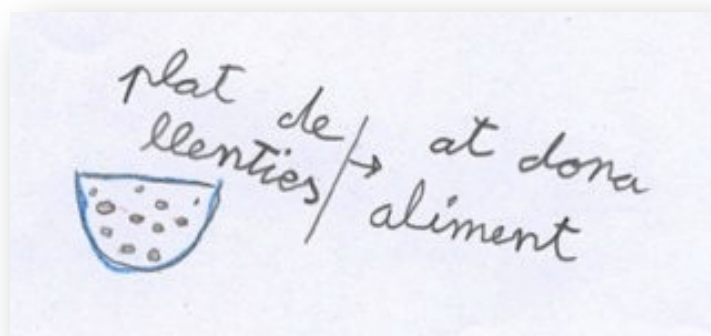 plat de
llenties
→ at dona
aliment